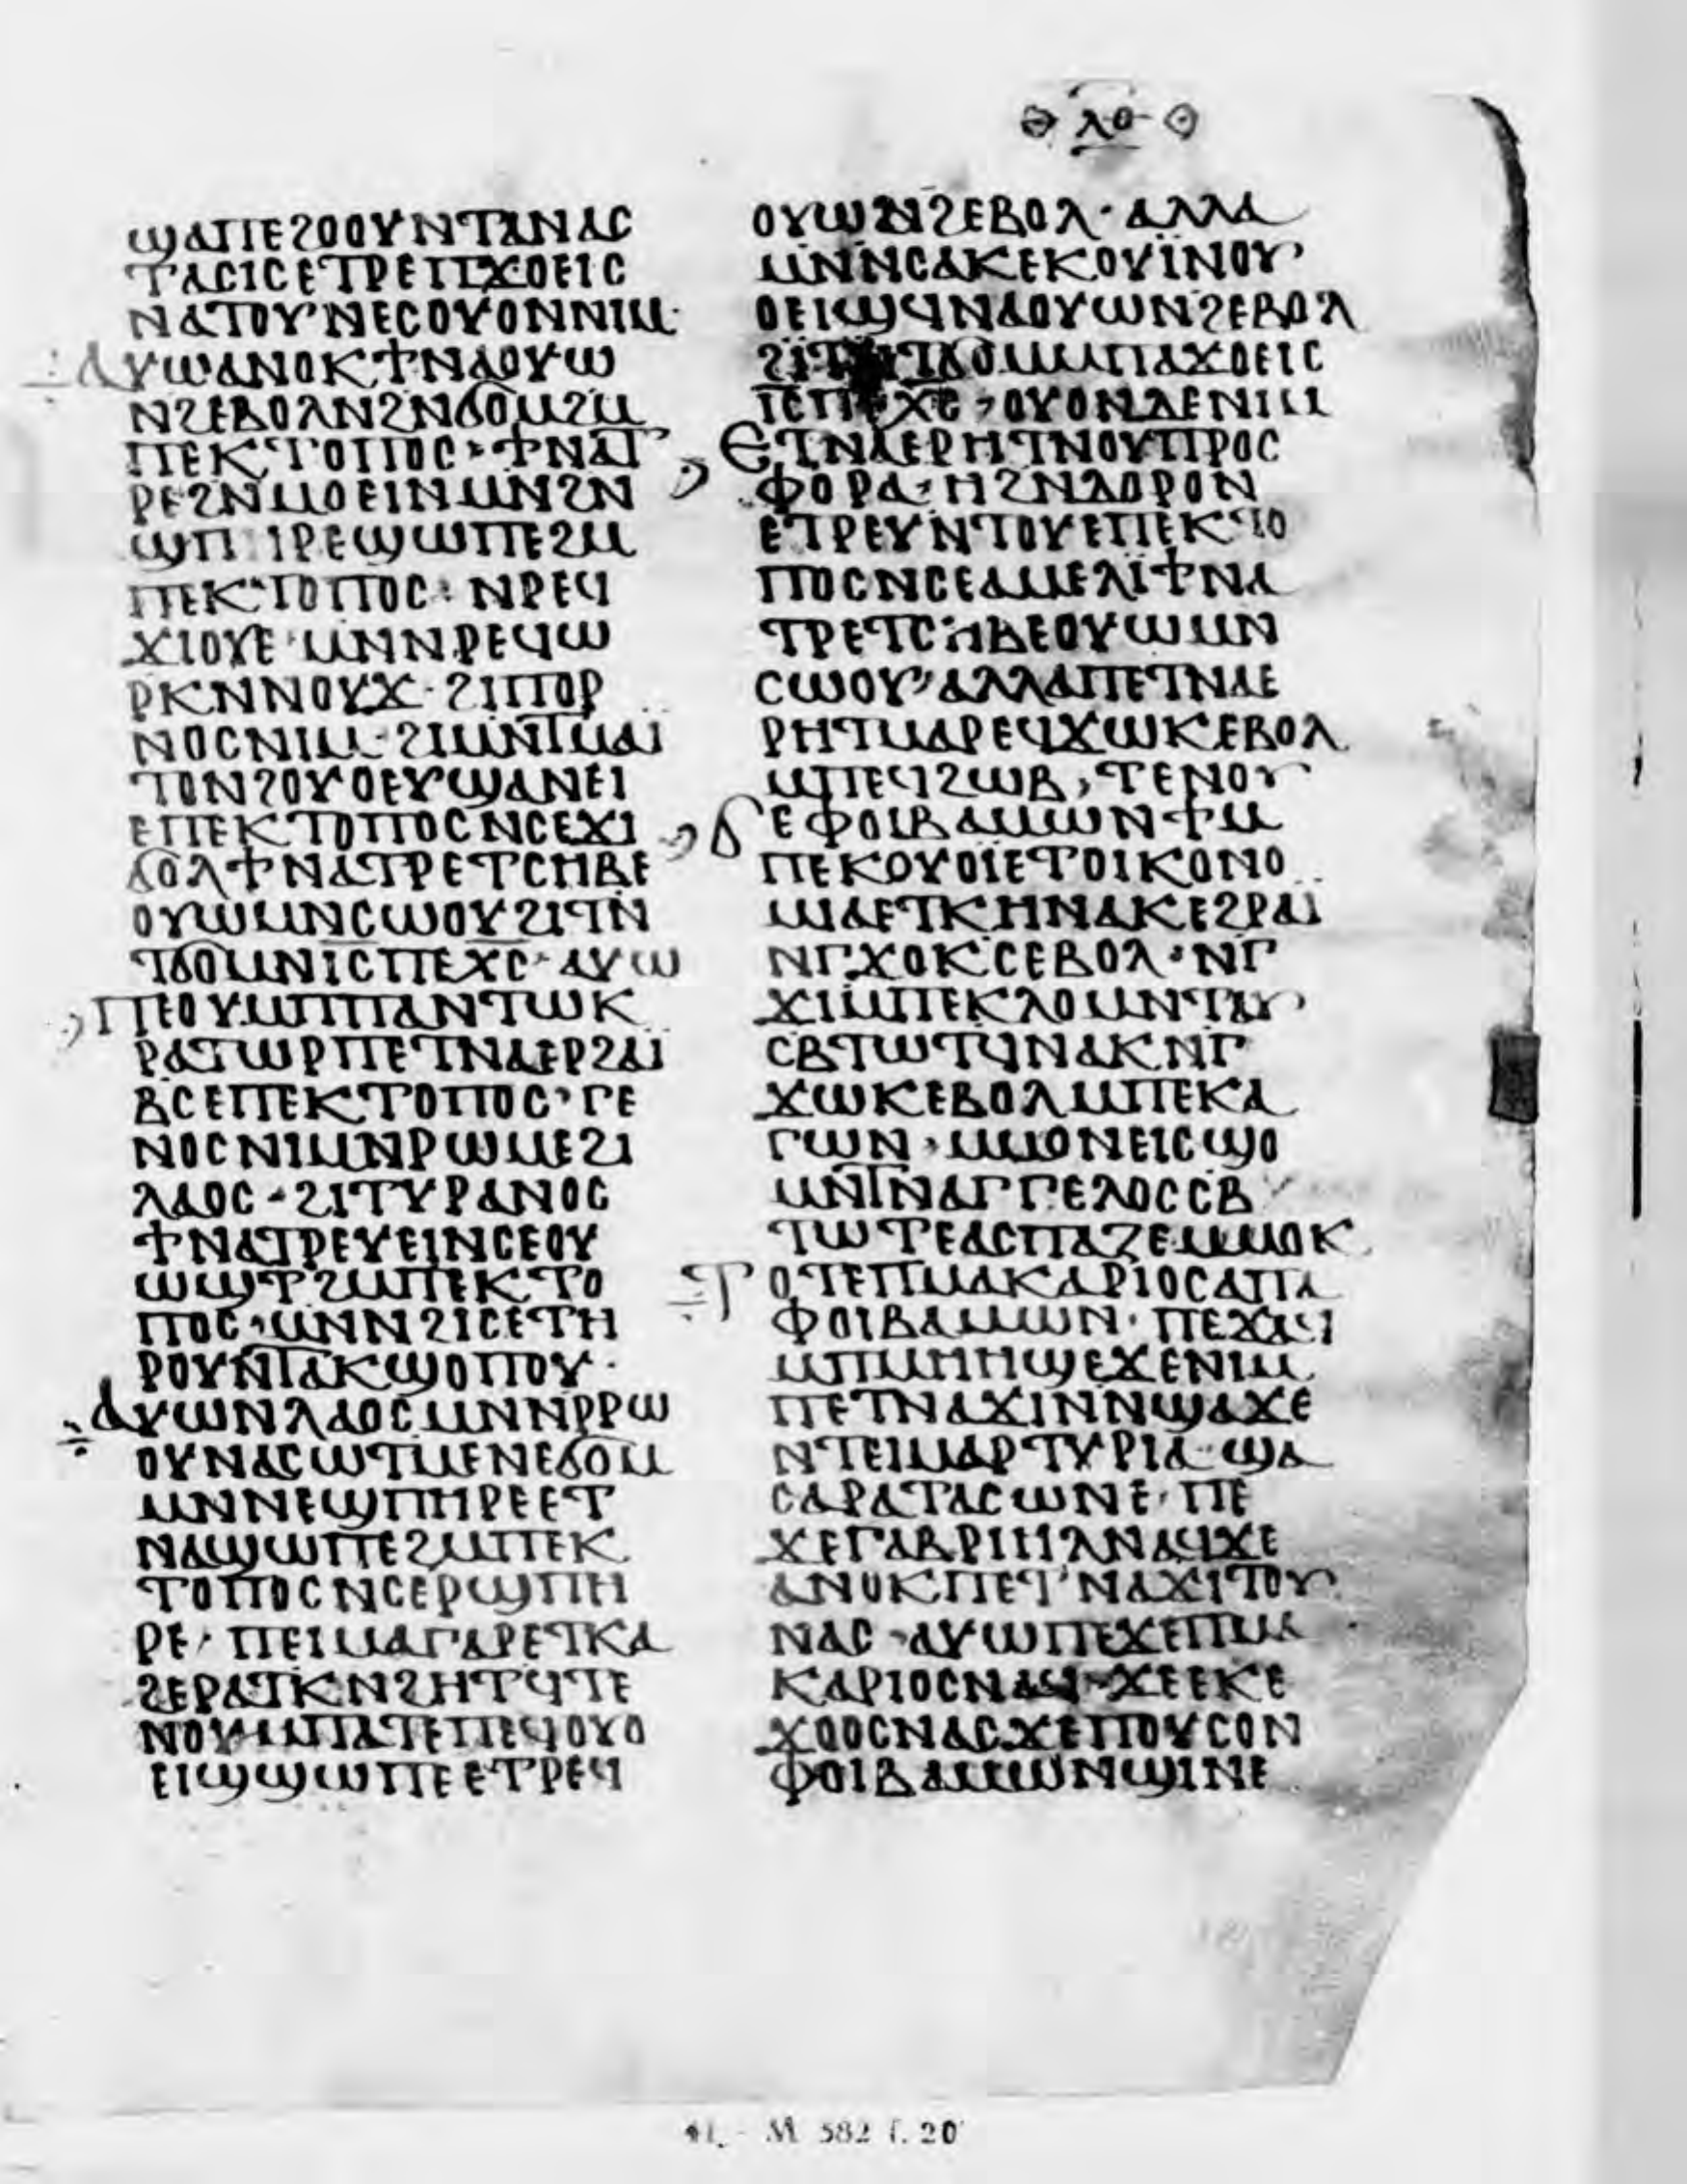 ⲗⲑ
ϣⲁⲡⲉϩⲟⲟⲩⲛⲧⲁⲛⲁⲥ
ⲧⲁⲥⲓⲥⲉⲧⲣⲉⲡϫⲟⲉⲓⲥ
ⲛⲁⲧⲟⲩⲛⲉⲥⲟⲩⲟⲛⲛⲓⲙ·
ⲁⲩⲱⲁⲛⲟⲕϯⲛⲁⲟⲩⲱ
ⲛϩⲉⲃⲟⲗⲛϩⲛϭⲟⲙϩⲙ
ⲡⲉⲕⲧⲟⲡⲟⲥ·ϯⲛⲁⲧ
ⲣⲉϩⲛⲙⲟⲉⲓⲛⲙⲛϩⲛ
ϣⲡⲏⲣⲉϣⲱⲡⲉϩⲙ
ⲡⲉⲕⲧⲟⲡⲟⲥ:ⲛⲣⲉϥ
ϫⲓⲟⲩⲉ·ⲙⲛⲛⲣⲉϥⲱ
ⲣⲕⲛⲛⲟⲩϫ·ϩⲓⲡⲟⲣ
ⲛⲟⲥⲛⲓⲙ·ϩⲓⲙⲛⲧⲙⲁⲓ
ⲧⲟⲛϩⲟⲩⲟⲉⲩϣⲁⲛⲉⲓ
ⲉⲡⲉⲕⲧⲟⲡⲟⲥⲛⲥⲉϫⲓ
ϭⲟⲗϯⲛⲁⲧⲣⲉⲧⲥⲏⲃⲉ
ⲟⲩⲱⲙⲛⲥⲱⲟⲩϩⲓⲧⲛ
ⲧϭⲟⲙⲛⲓⲥⲡⲉⲭⲥ·ⲁⲩⲱ
ⲡⲉⲟⲩⲙⲡⲡⲁⲛⲧⲱⲕ
ⲣⲁⲧⲱⲣⲡⲉⲧⲛⲁⲉⲣϩⲁⲓ
ⲃⲥⲉⲡⲉⲕⲧⲟⲡⲟⲥ·ⲅⲉ
ⲛⲟⲥⲛⲓⲙⲛⲣⲱⲙⲉϩⲓ
ⲗⲁⲟⲥ·ϩⲓⲧⲩⲣⲁⲛⲟⲥ
ϯⲛⲁⲧⲣⲉⲩⲉⲓⲛⲥⲉⲟⲩ
ⲱϣⲧϩⲙⲡⲉⲕⲧⲟ
ⲡⲟⲥ·ⲙⲛⲛϩⲓⲥⲉⲧⲏ
ⲣⲟⲩⲛⲧⲁⲕϣⲟⲡⲟⲩ·
ⲁⲩⲱⲛⲗⲁⲟⲥⲙⲛⲛⲣⲣⲱ
ⲟⲩⲛⲁⲥⲱⲧⲙⲉⲛⲉϭⲟⲙ
ⲙⲛⲛⲉϣⲡⲏⲣⲉⲉⲧ
ⲛⲁϣⲱⲡⲉϩⲙⲡⲉⲕ
ⲧⲟⲡⲟⲥⲛⲥⲉⲣϣⲡⲏ
ⲣⲉ·ⲡⲉⲓⲙⲁⲅⲁⲣⲉⲧⲕⲁ
ϩⲉⲣⲁⲧⲕⲛϩⲏⲧϥⲧⲉ
ⲛⲟⲩⲙⲡⲁⲧⲉⲡⲉϥⲟⲩⲟ
ⲉⲓϣϣⲱⲡⲉⲉⲧⲣⲉϥ
ⲟⲩⲱⲛϩⲉⲃⲟⲗ·ⲁⲗⲗⲁ
ⲙⲛⲛⲥⲁⲕⲉⲕⲟⲩⲓⲛⲟⲩ
ⲟⲉⲓϣϥⲛⲁⲟⲩⲱⲛϩⲉⲃⲟⲗ
ϩⲓⲧⲛⲧϭⲟⲙⲙⲡⲁϫⲟⲉⲓⲥ
ⲓⲥⲡⲉⲭⲥ·ⲟⲩⲟⲛⲇⲉⲛⲓⲙ
ⲉⲧⲛⲁⲉⲣⲏⲧⲛⲟⲩⲡⲣⲟⲥ
ⲫⲟⲣⲁ·ⲏϩⲛⲇⲱⲣⲟⲛ
ⲉⲧⲣⲉⲩⲛⲧⲟⲩⲉⲡⲉⲕⲧⲟ
ⲡⲟⲥⲛⲥⲉⲁⲙⲉⲗⲓϯⲛⲁ
ⲧⲣⲉⲧⲥⲏⲃⲉⲟⲩⲱⲙⲛ
ⲥⲱⲟⲩ·ⲁⲗⲗⲁⲡⲉⲧⲛⲁⲉ
ⲣⲏⲧⲙⲁⲣⲉϥϫⲱⲕⲉⲃⲟⲗ
ⲙⲡⲉϥϩⲱⲃ·ⲧⲉⲛⲟⲩ
ϭⲉⲫⲟⲓⲃⲁⲙⲱⲛϯⲙ
ⲡⲉⲕⲟⲩⲟⲓⲉⲧⲟⲓⲕⲟⲛⲟ
ⲙⲓⲁⲉⲧⲕⲏⲛⲁⲕⲉϩⲣⲁⲓ
ⲛⲅϫⲟⲕⲥⲉⲃⲟⲗ·ⲛⲅ
ϫⲓⲙⲡⲉⲕⲗⲟⲙⲛⲧⲁⲩ
ⲥⲃⲧⲱⲧϥⲛⲁⲕⲛⲅ
ϫⲱⲕⲉⲃⲟⲗⲙⲡⲉⲕⲁ
ⲅⲱⲛ·ⲙⲙⲟⲛⲉⲓⲥϣⲟ
ⲙⲛⲧⲛⲁⲅⲅⲉⲗⲟⲥⲥⲃ
ⲧⲱⲧⲉⲁⲥⲡⲁⲍⲉⲙⲙⲟⲕ
ⲧⲟⲧⲉⲡⲙⲁⲕⲁⲣⲓⲟⲥⲁⲡⲁ
ⲫⲟⲓⲃⲁⲙⲱⲛ·ⲡⲉϫⲁϥ
ⲙⲡⲙⲏⲏϣⲉϫⲉⲛⲓⲙ
ⲡⲉⲧⲛⲁϫⲓⲛⲛϣⲁϫⲉ
ⲛⲧⲉⲓⲙⲁⲣⲧⲩⲣⲓⲁ·ϣⲁ
ⲥⲁⲣⲁⲧⲁⲥⲱⲛⲉ·ⲡⲉ
ϫⲉⲅⲁⲃⲣⲓⲏⲗⲛⲁϥϫⲉ
ⲁⲛⲟⲕⲡⲉⲧⲛⲁϫⲓⲧⲟⲩ
ⲛⲁⲥ·ⲁⲩⲱⲡⲉϫⲉⲡⲙⲁ
ⲕⲁⲣⲓⲟⲥⲛⲁϥ·ϫⲉⲉⲕⲉ
ϫⲟⲟⲥⲛⲁⲥϫⲉⲡⲟⲩⲥⲟⲛ
ⲫⲟⲓⲃⲁⲙⲱⲛϣⲓⲛⲉ
M 582 f. 20